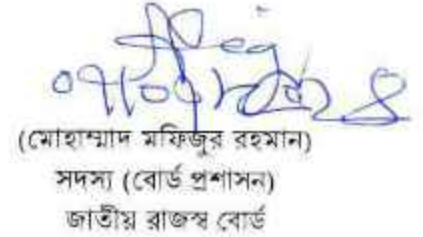 (মোহাম্মাদ মফিজুর রহমান)
সদস্য (বোর্ড প্রশাসন)
জাতীয় রাজস্ব বোর্ড